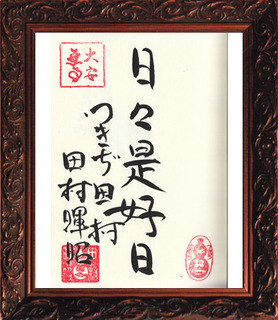 日々是好日
つきぢ田村
田村暉昭
大安